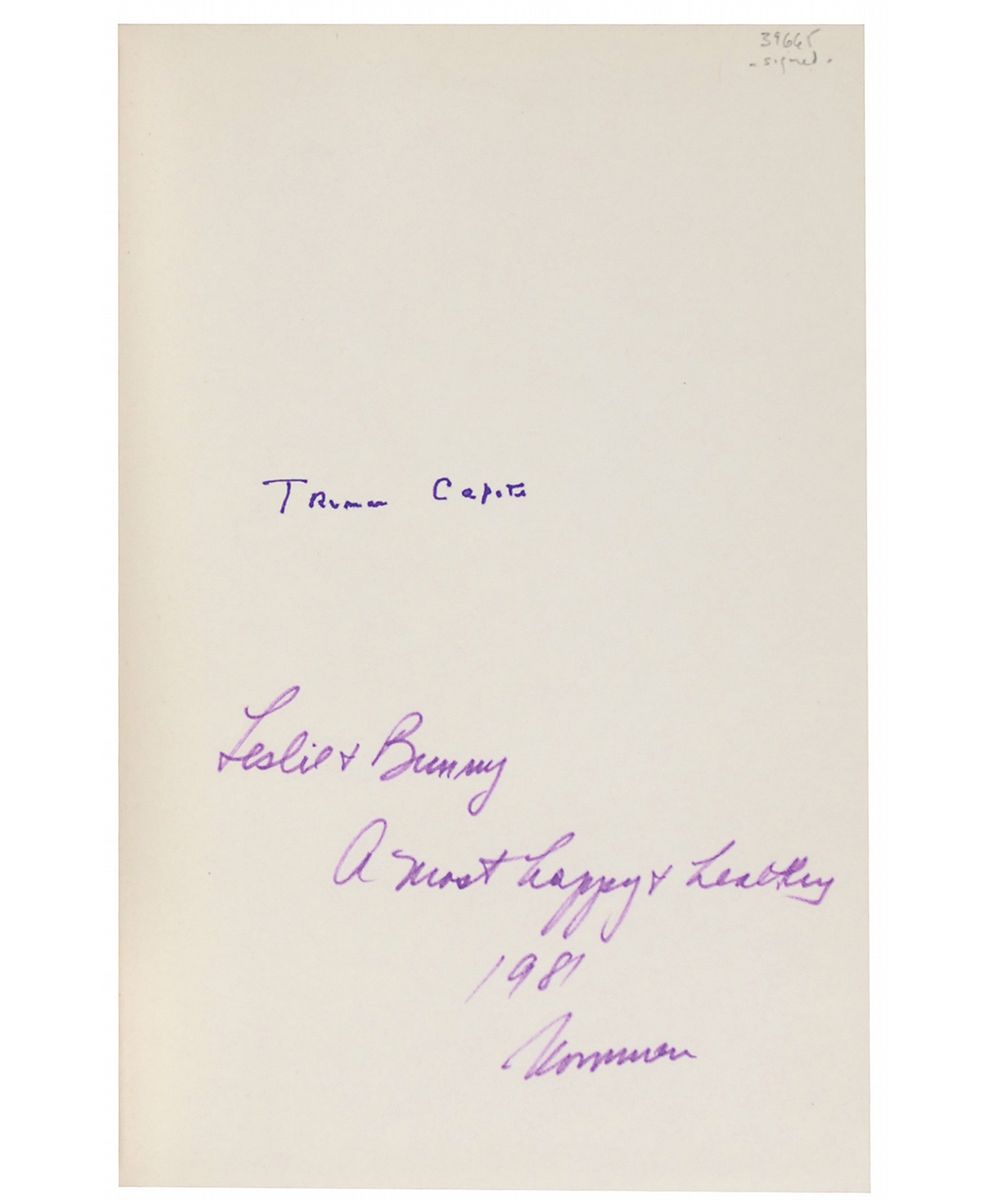 39665
- signed -
Truman Capote
Leslie & Bunny
A most happy & healthy
1981
Norman